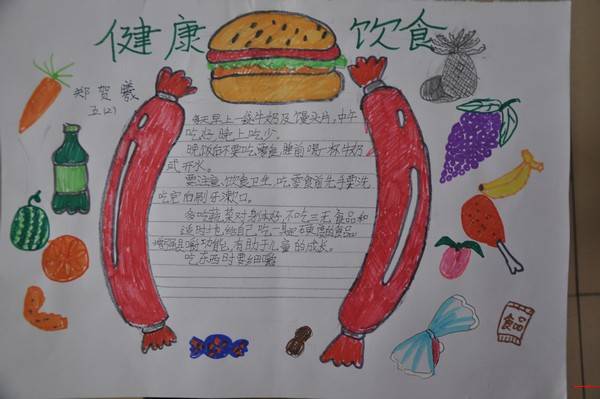 健康饮食
郑贺曦
五(2)
每天早上一袋牛奶及馒头片,中午
吃好,晚上吃少。
晚饭后不要吃零食,睡前喝一杯牛奶
或开水。
要注意饮食卫生,吃零食首先手要洗,
吃完后刷牙漱口。
多吃蔬菜对身体好,不吃三无食品和
适时地给自己吃一些硬的食品
增强咀嚼功能,有助于儿童的成长。
吃东西时要细嚼
食品